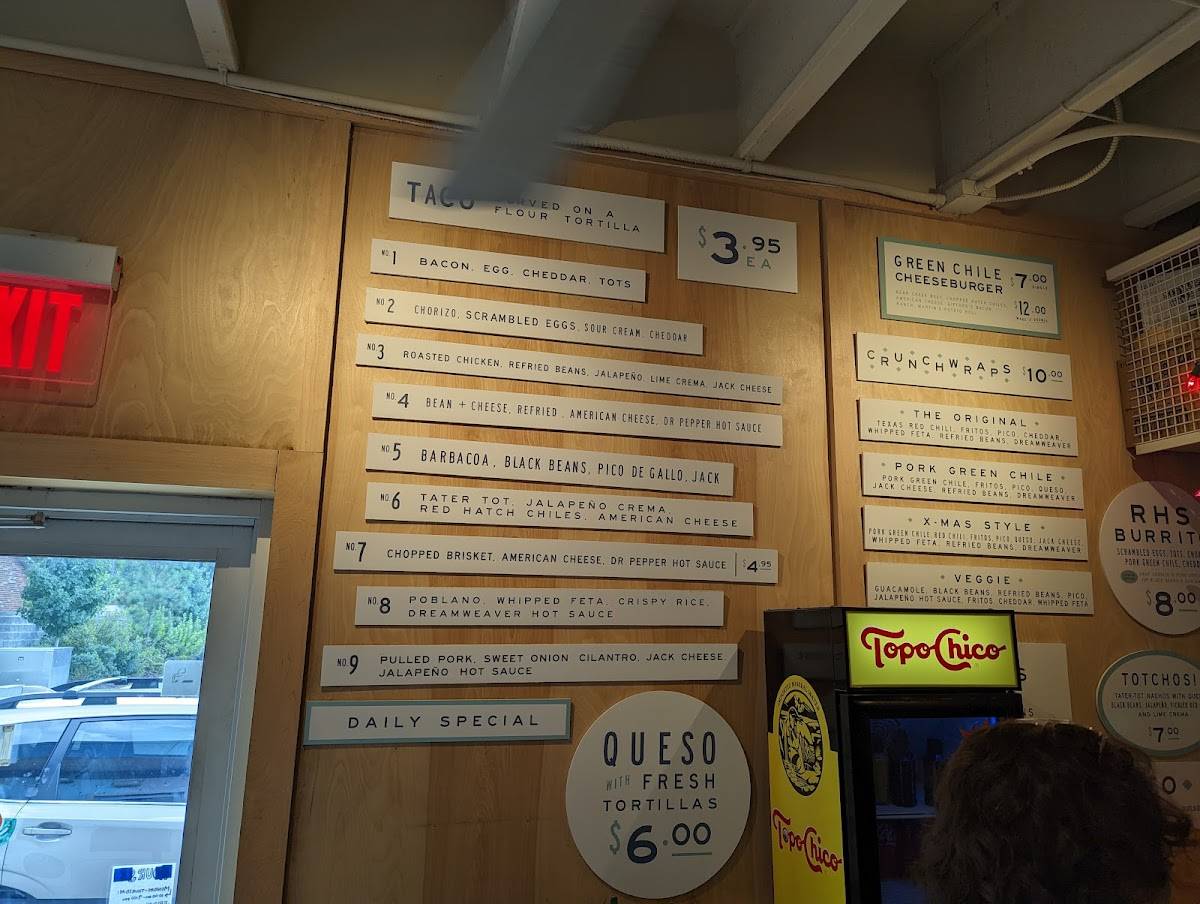 EXIT
TACO
SERVED ON A
FLOUR TORTILLA
$3.95
EA
NO.1 BACON, EGG, CHEDDAR, TOTS
NO.2 CHORIZO, SCRAMBLED EGGS, SOUR CREAM, CHEDDAR
NO.3 ROASTED CHICKEN, REFRIED BEANS, JALAPEÑO, LIME CREMA, JACK CHEESE
NO.4 BEAN + CHEESE, REFRIED, AMERICAN CHEESE, DR PEPPER HOT SAUCE
NO.5 BARBACOA, BLACK BEANS, PICO DE GALLO, JACK
NO.6 TATER TOT, JALAPEÑO CREMA,
RED HATCH CHILES, AMERICAN CHEESE
NO.7 CHOPPED BRISKET, AMERICAN CHEESE, DR PEPPER HOT SAUCE $4.95
NO.8 POBLANO, WHIPPED FETA, CRISPY RICE,
DREAMWEAVER HOT SAUCE
NO.9 PULLED PORK, SWEET ONION CILANTRO, JACK CHEESE,
JALAPEÑO HOT SAUCE
DAILY SPECIAL
QUESO
WITH FRESH
TORTILLAS
$6.00
GREEN CHILE
CHEESEBURGER
$7.00
SINGLE
$12.00
CRUNCHWRAPS $10.00
THE ORIGINAL
TEXAS RED CHILI, FRITOS, PICO, CHEDDAR,
WHIPPED FETA, REFRIED BEANS, DREAMWEAVER
PORK GREEN CHILE
PORK GREEN CHILE, FRITOS, PICO, QUESO,
JACK CHEESE, REFRIED BEANS, DREAMWEAVER
X-MAS STYLE
PORK GREEN CHILE, RED CHILI, FRITOS, PICO, QUESO, JACK CHEESE,
WHIPPED FETA, REFRIED BEANS, DREAMWEAVER
VEGGIE
GUACAMOLE, BLACK BEANS, REFRIED BEANS, PICO,
JALAPEÑO HOT SAUCE, FRITOS, CHEDDAR, WHIPPED FETA
RHS
BURRITO
SCRAMBLED EGGS, TOTS,
PORK GREEN CHILE,
$8.00
TOTCHOS!
TATER-TOT NACHOS WITH
BLACK BEANS, JALAPEÑO, PICKLED RED
AND LIME CREMA
$7.00
Topo Chico
Topo Chico